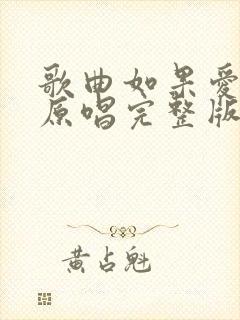 歌曲如果爱
原唱完整版
黄占魁